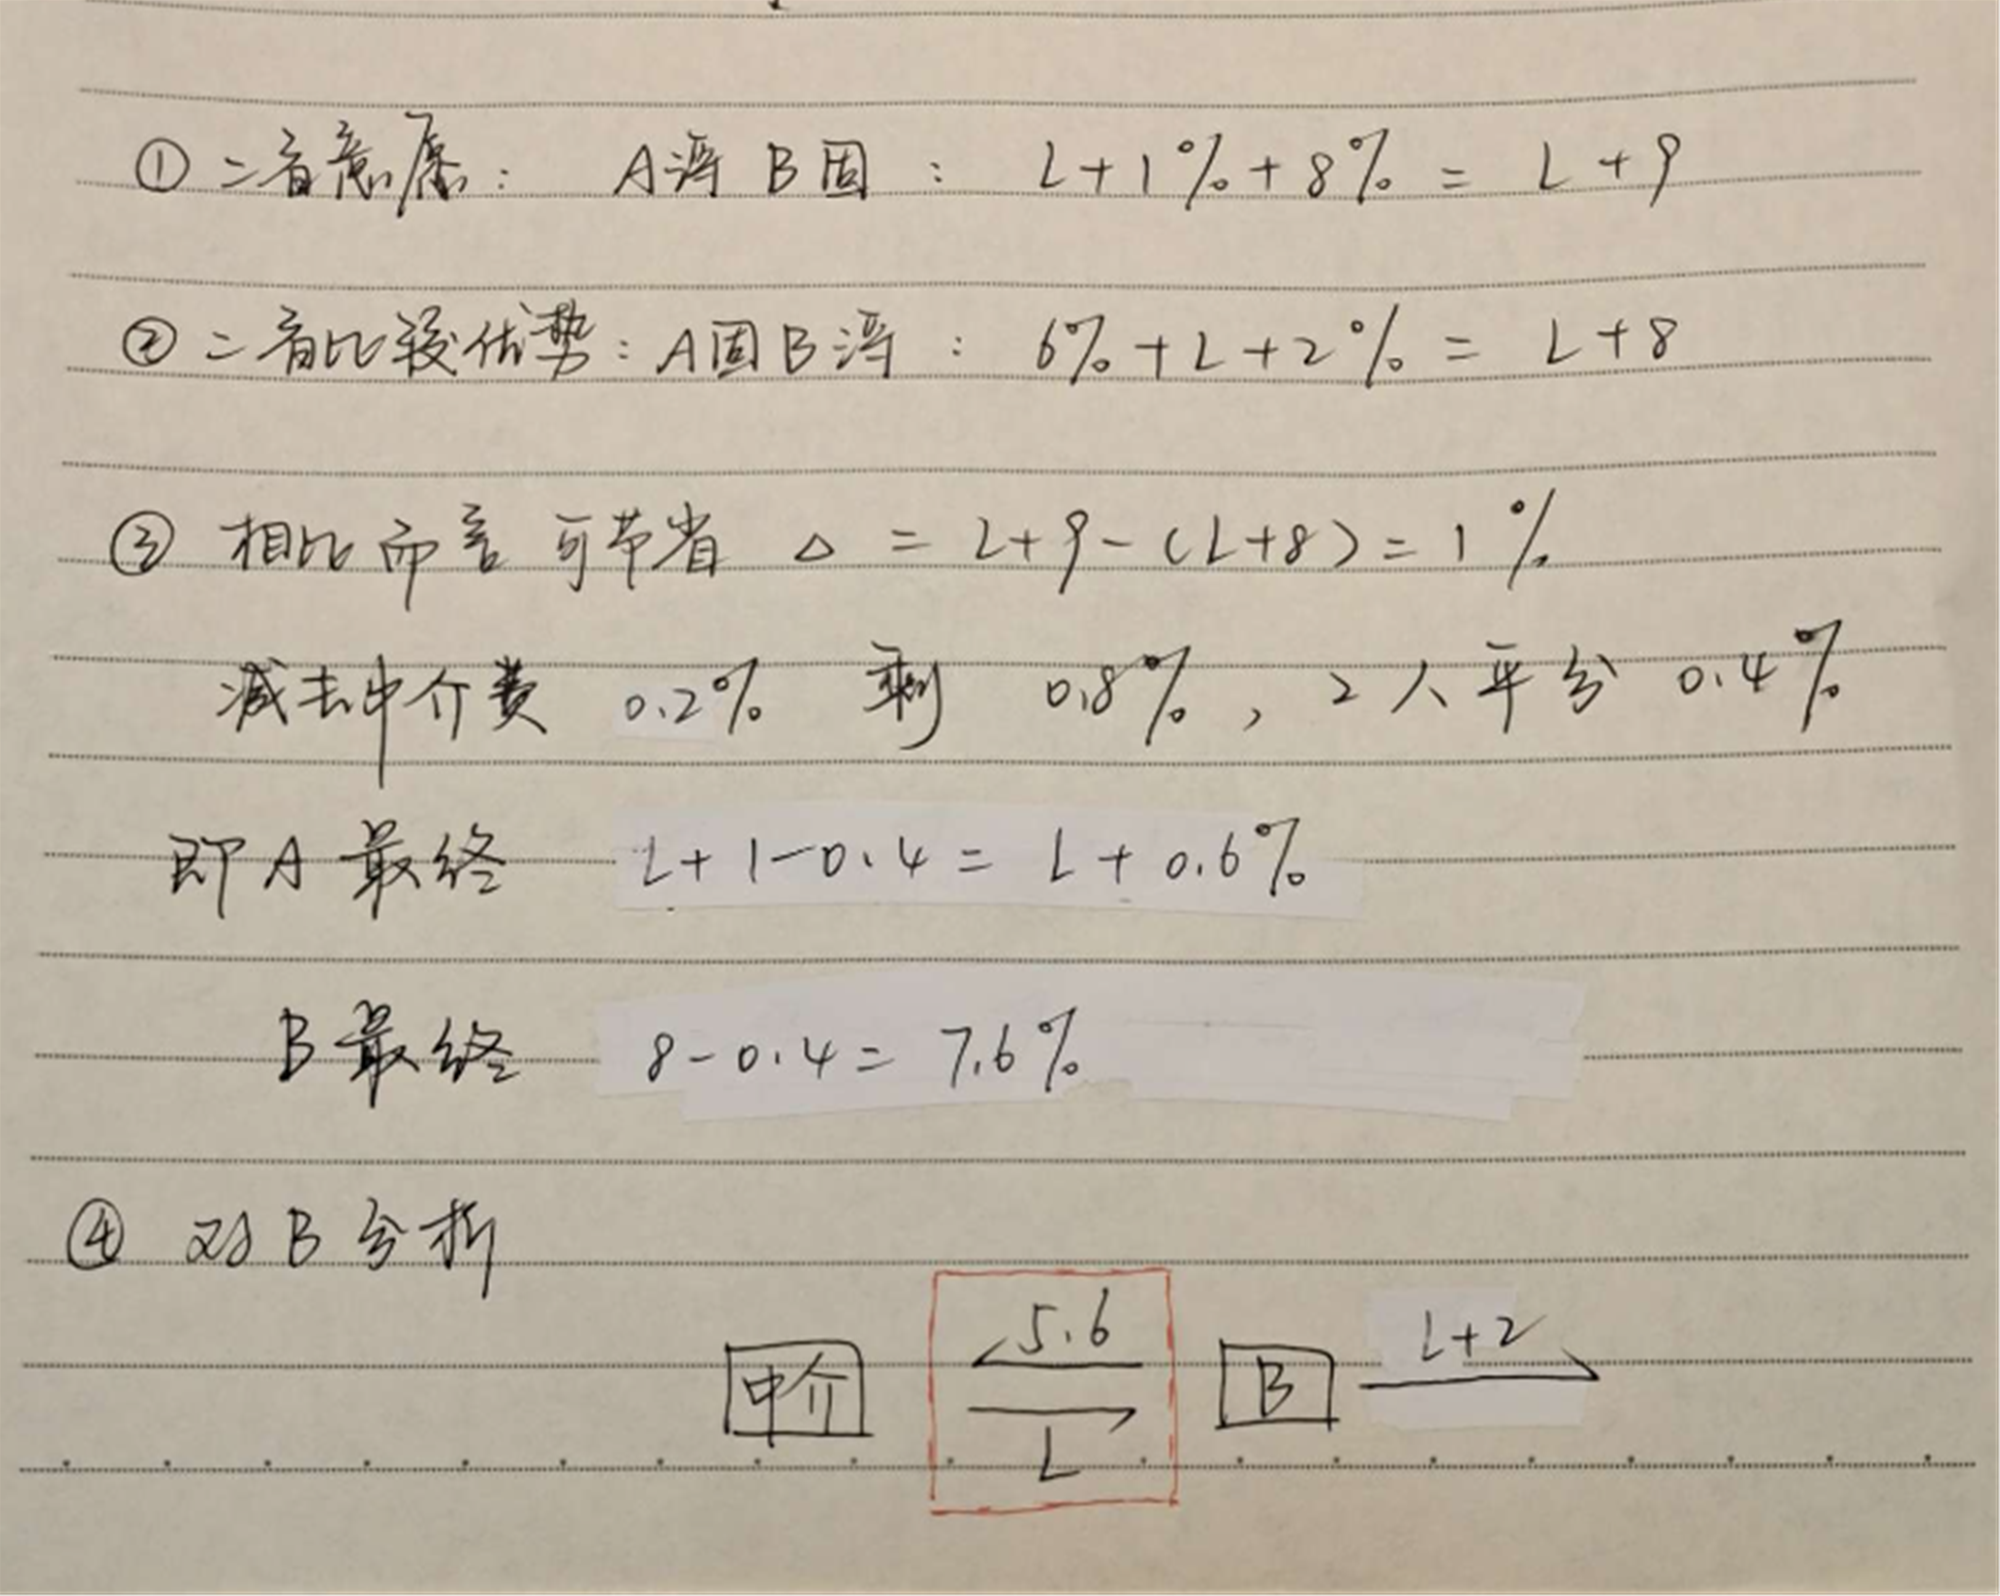 ① 二者意愿： A浮B固： L+1%+8% = L+9
② 二者比较优势：A固B浮： 6%+L+2% = L+8
③ 相比而言 可节省 △ = L+9-(L+8)=1%
减去中介费 0.2% 剩 0.8%，2人平分 0.4%
即A最终 L+1-0.4= L+0.6%
B最终 8-0.4= 7.6%
④ 对B分析
5.6
中介 B L+2
L